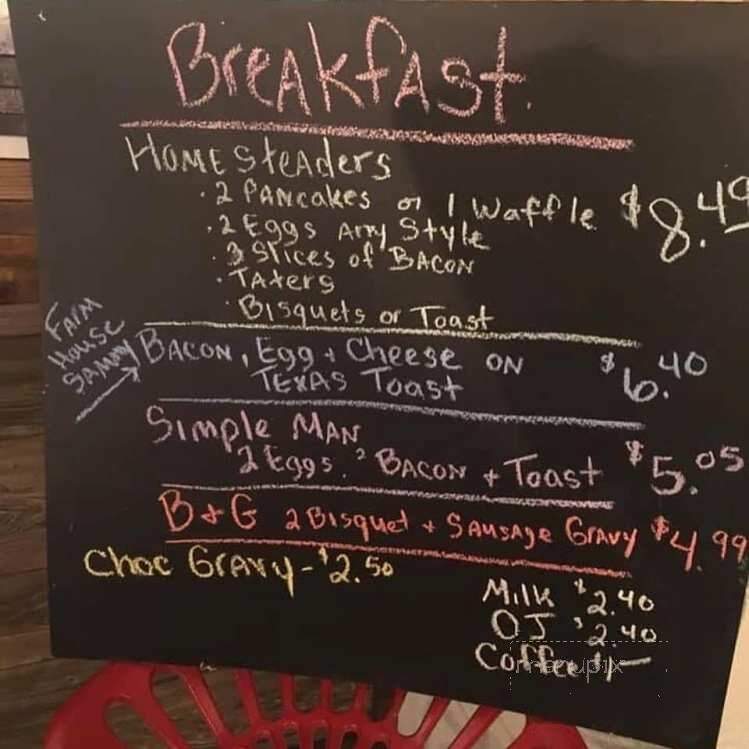 Breakfast.
Homesteaders
· 2 Pancakes or 1 Waffle $8.49
· 2 Eggs Any Style
· 3 Slices of Bacon
· Taters
· Bisquets or Toast
Farm
House
Sammy
Bacon, Egg + Cheese on $6.40
Texas Toast
Simple Man
2 Eggs, 2 Bacon + Toast $5.05
B + G 2 Bisquet + Sausage Gravy $4.99
Choc Gravy - $2.50
Milk $2.40
OJ $2.40
Coffee
menupix